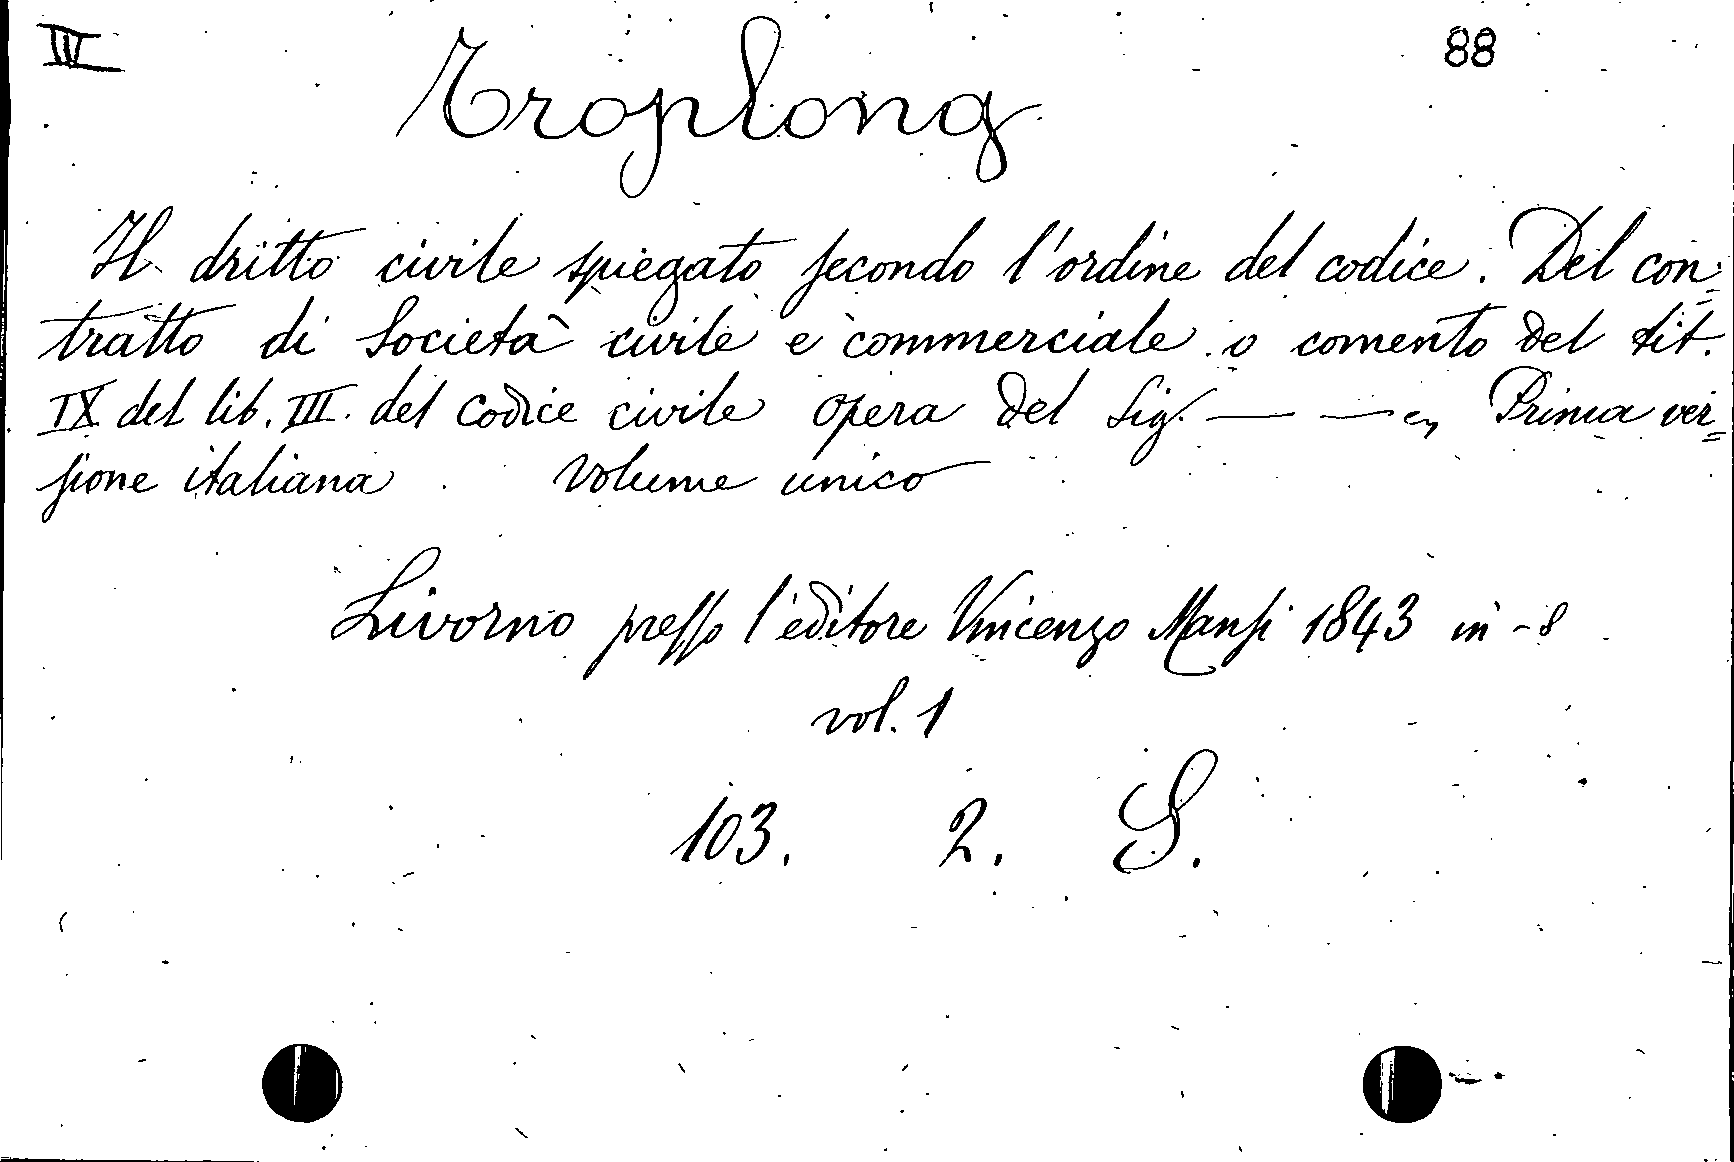 III 88
Troplong
Il dritto civile spiegato secondo l'ordine del codice. Del con=
tratto di Società civile e commerciale o comento del tit.
IX del lib. III. del Codice civile opera del Sig. — — Prima ver=
sione italiana Volume unico
Livorno presso l'editore Vincenzo Mansi 1843 in-8
vol. 1
103. 2. S.